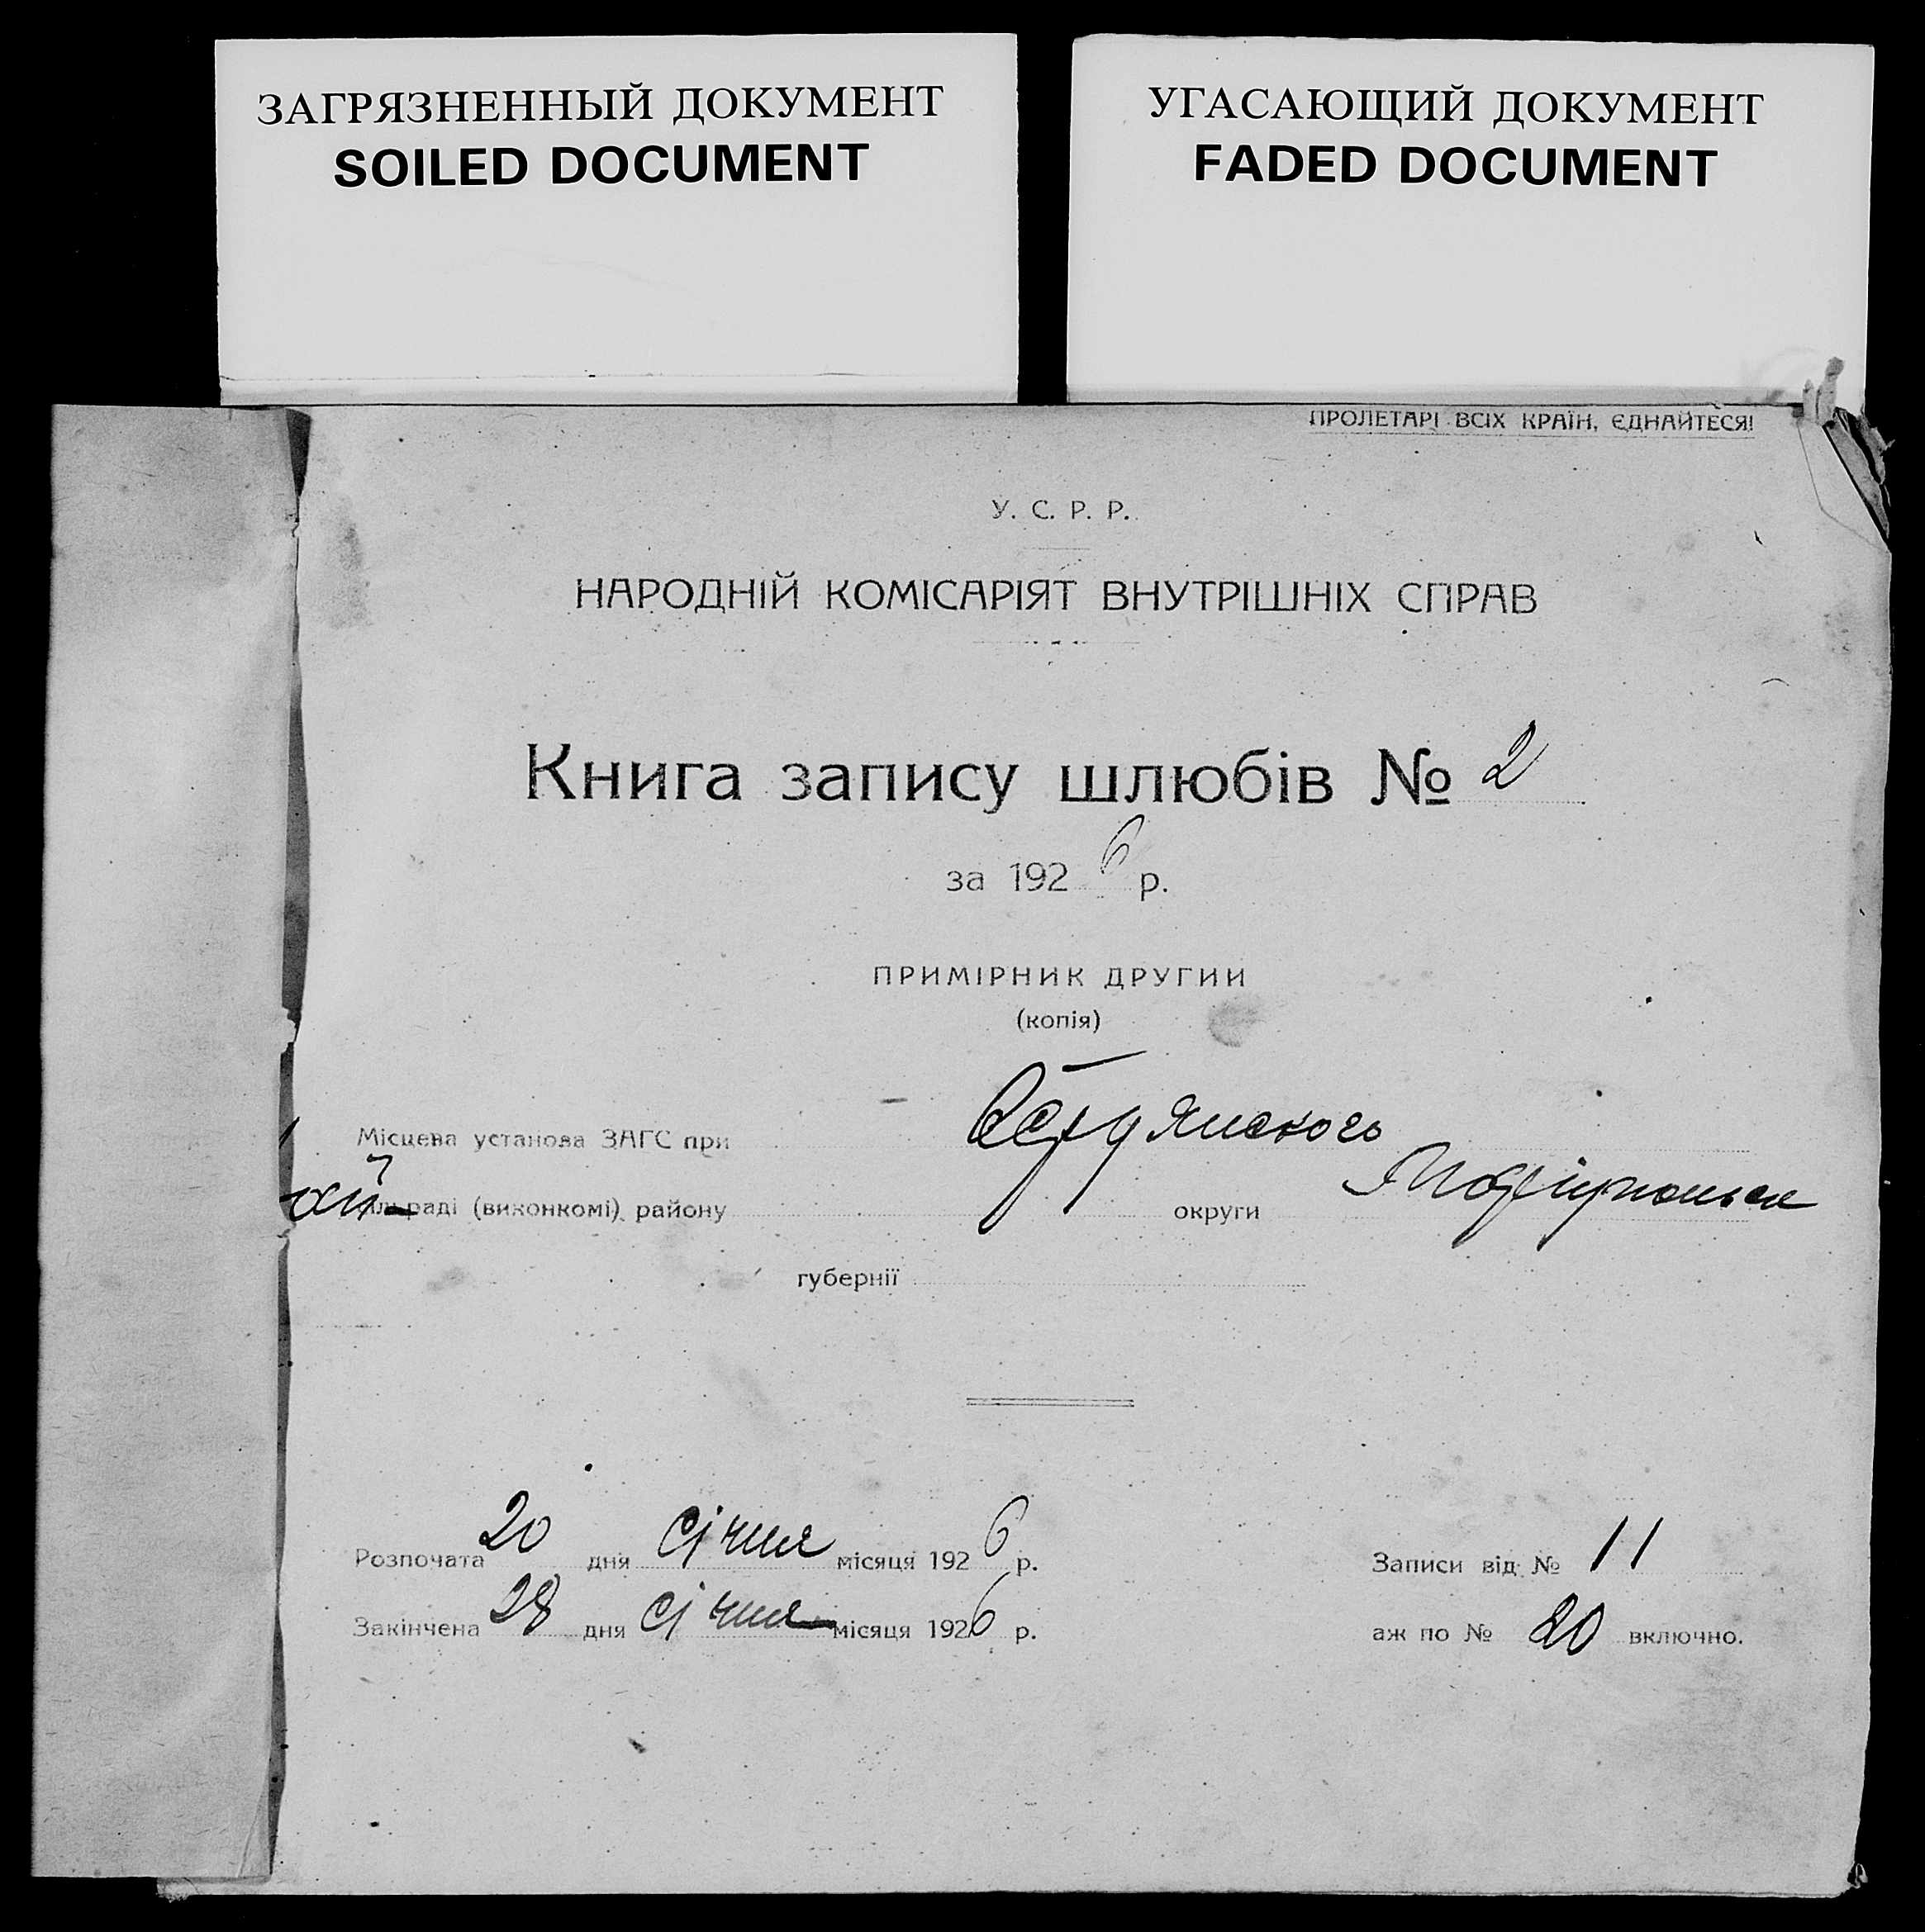 ЗАГРЯЗНЕННЫЙ ДОКУМЕНТ
SOILED DOCUMENT
УГАСАЮЩИЙ ДОКУМЕНТ
FADED DOCUMENT
ПРОЛЕТАРІ ВСІХ КРАЇН, ЄДНАЙТЕСЯ!
У. С. Р. Р.
НАРОДНІЙ КОМІСАРІЯТ ВНУТРІШНІХ СПРАВ
Книга запису шлюбів № 2
за 1926 р.
ПРИМІРНИК ДРУГИЙ
(копія)
Місцева установа ЗАГС при
раді (виконкомі) району округи
губернії
Розпочата 20 дня січня місяця 1926 р.
Записи від № 11
Закінчена 28 дня січня місяця 1926 р.
аж по № 20 включно.